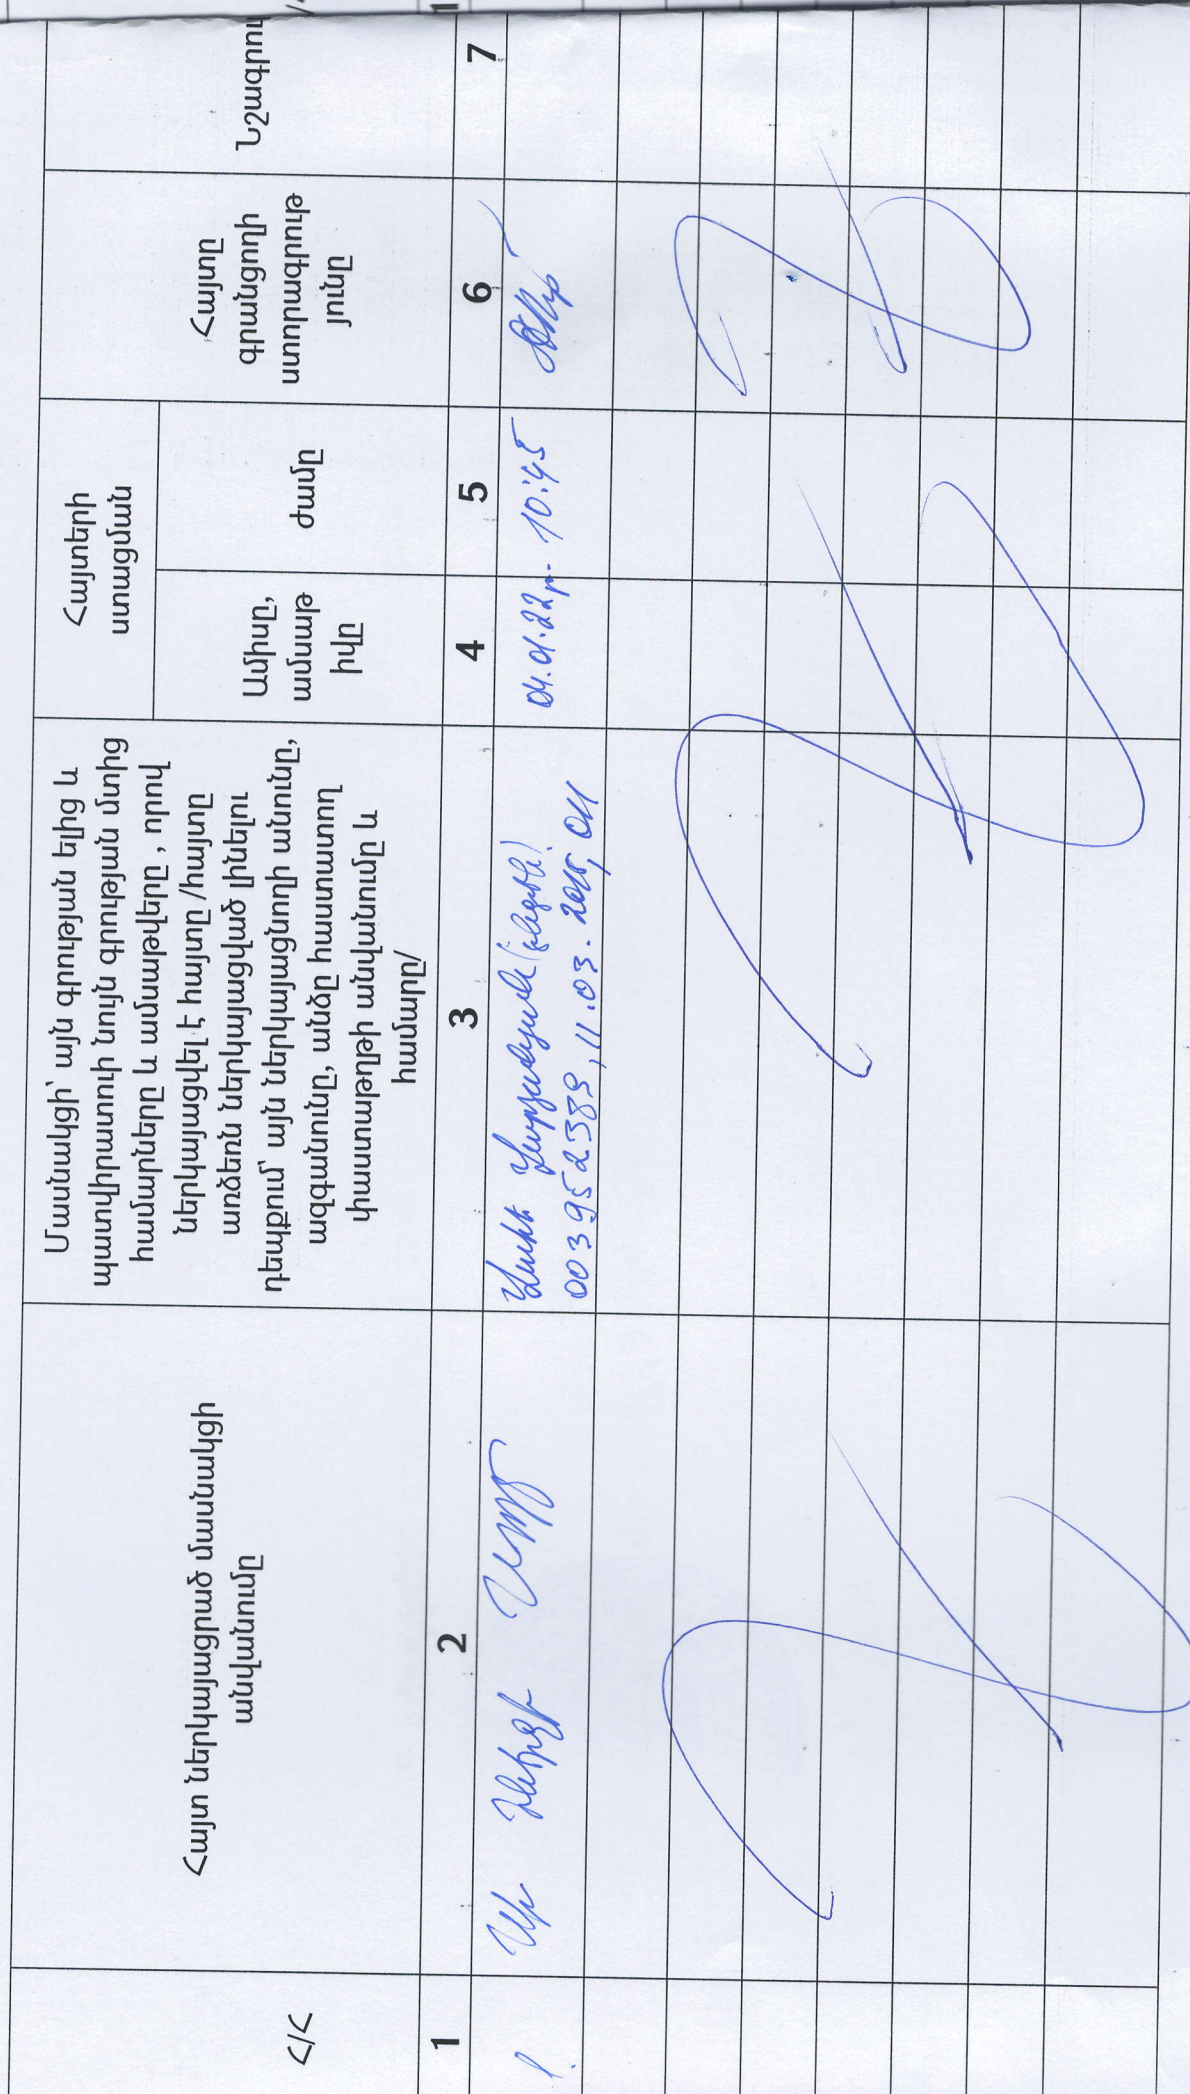 Հ/Հ
Հայտ ներկայացրած մասնակցի
անվանումը
Մասնակցի՝ այն գրության ելից և
պատվիրատուի նույն գրության մտից
համարները և ամսաթվերը , որով
ներկայացվել է հայտը /հայտը
առձեռն ներկայացված լինելու
դեպքում՝ այն ներկայացնողի անունը,
ազգանունը, անձը հաստատող
փաստաթղթի անվանումը և
համարը/
Հայտերի
ստացման
Ամիսը,
ամսաթ
իվը
Ժամը
Հայտը
գրանցողի
ստորագրութ
յունը
Նշագրու
1 2 3 4 5 6 7
1. Սի Էներջի
003952389, 11.03.2015, 011
04.01.22թ. 10:45